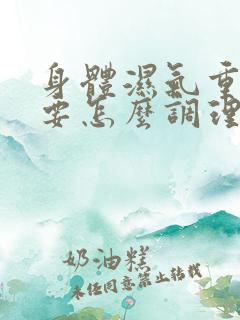 身體濕氣重
要怎麼調理
奶油糕
未任同意禁止轉載